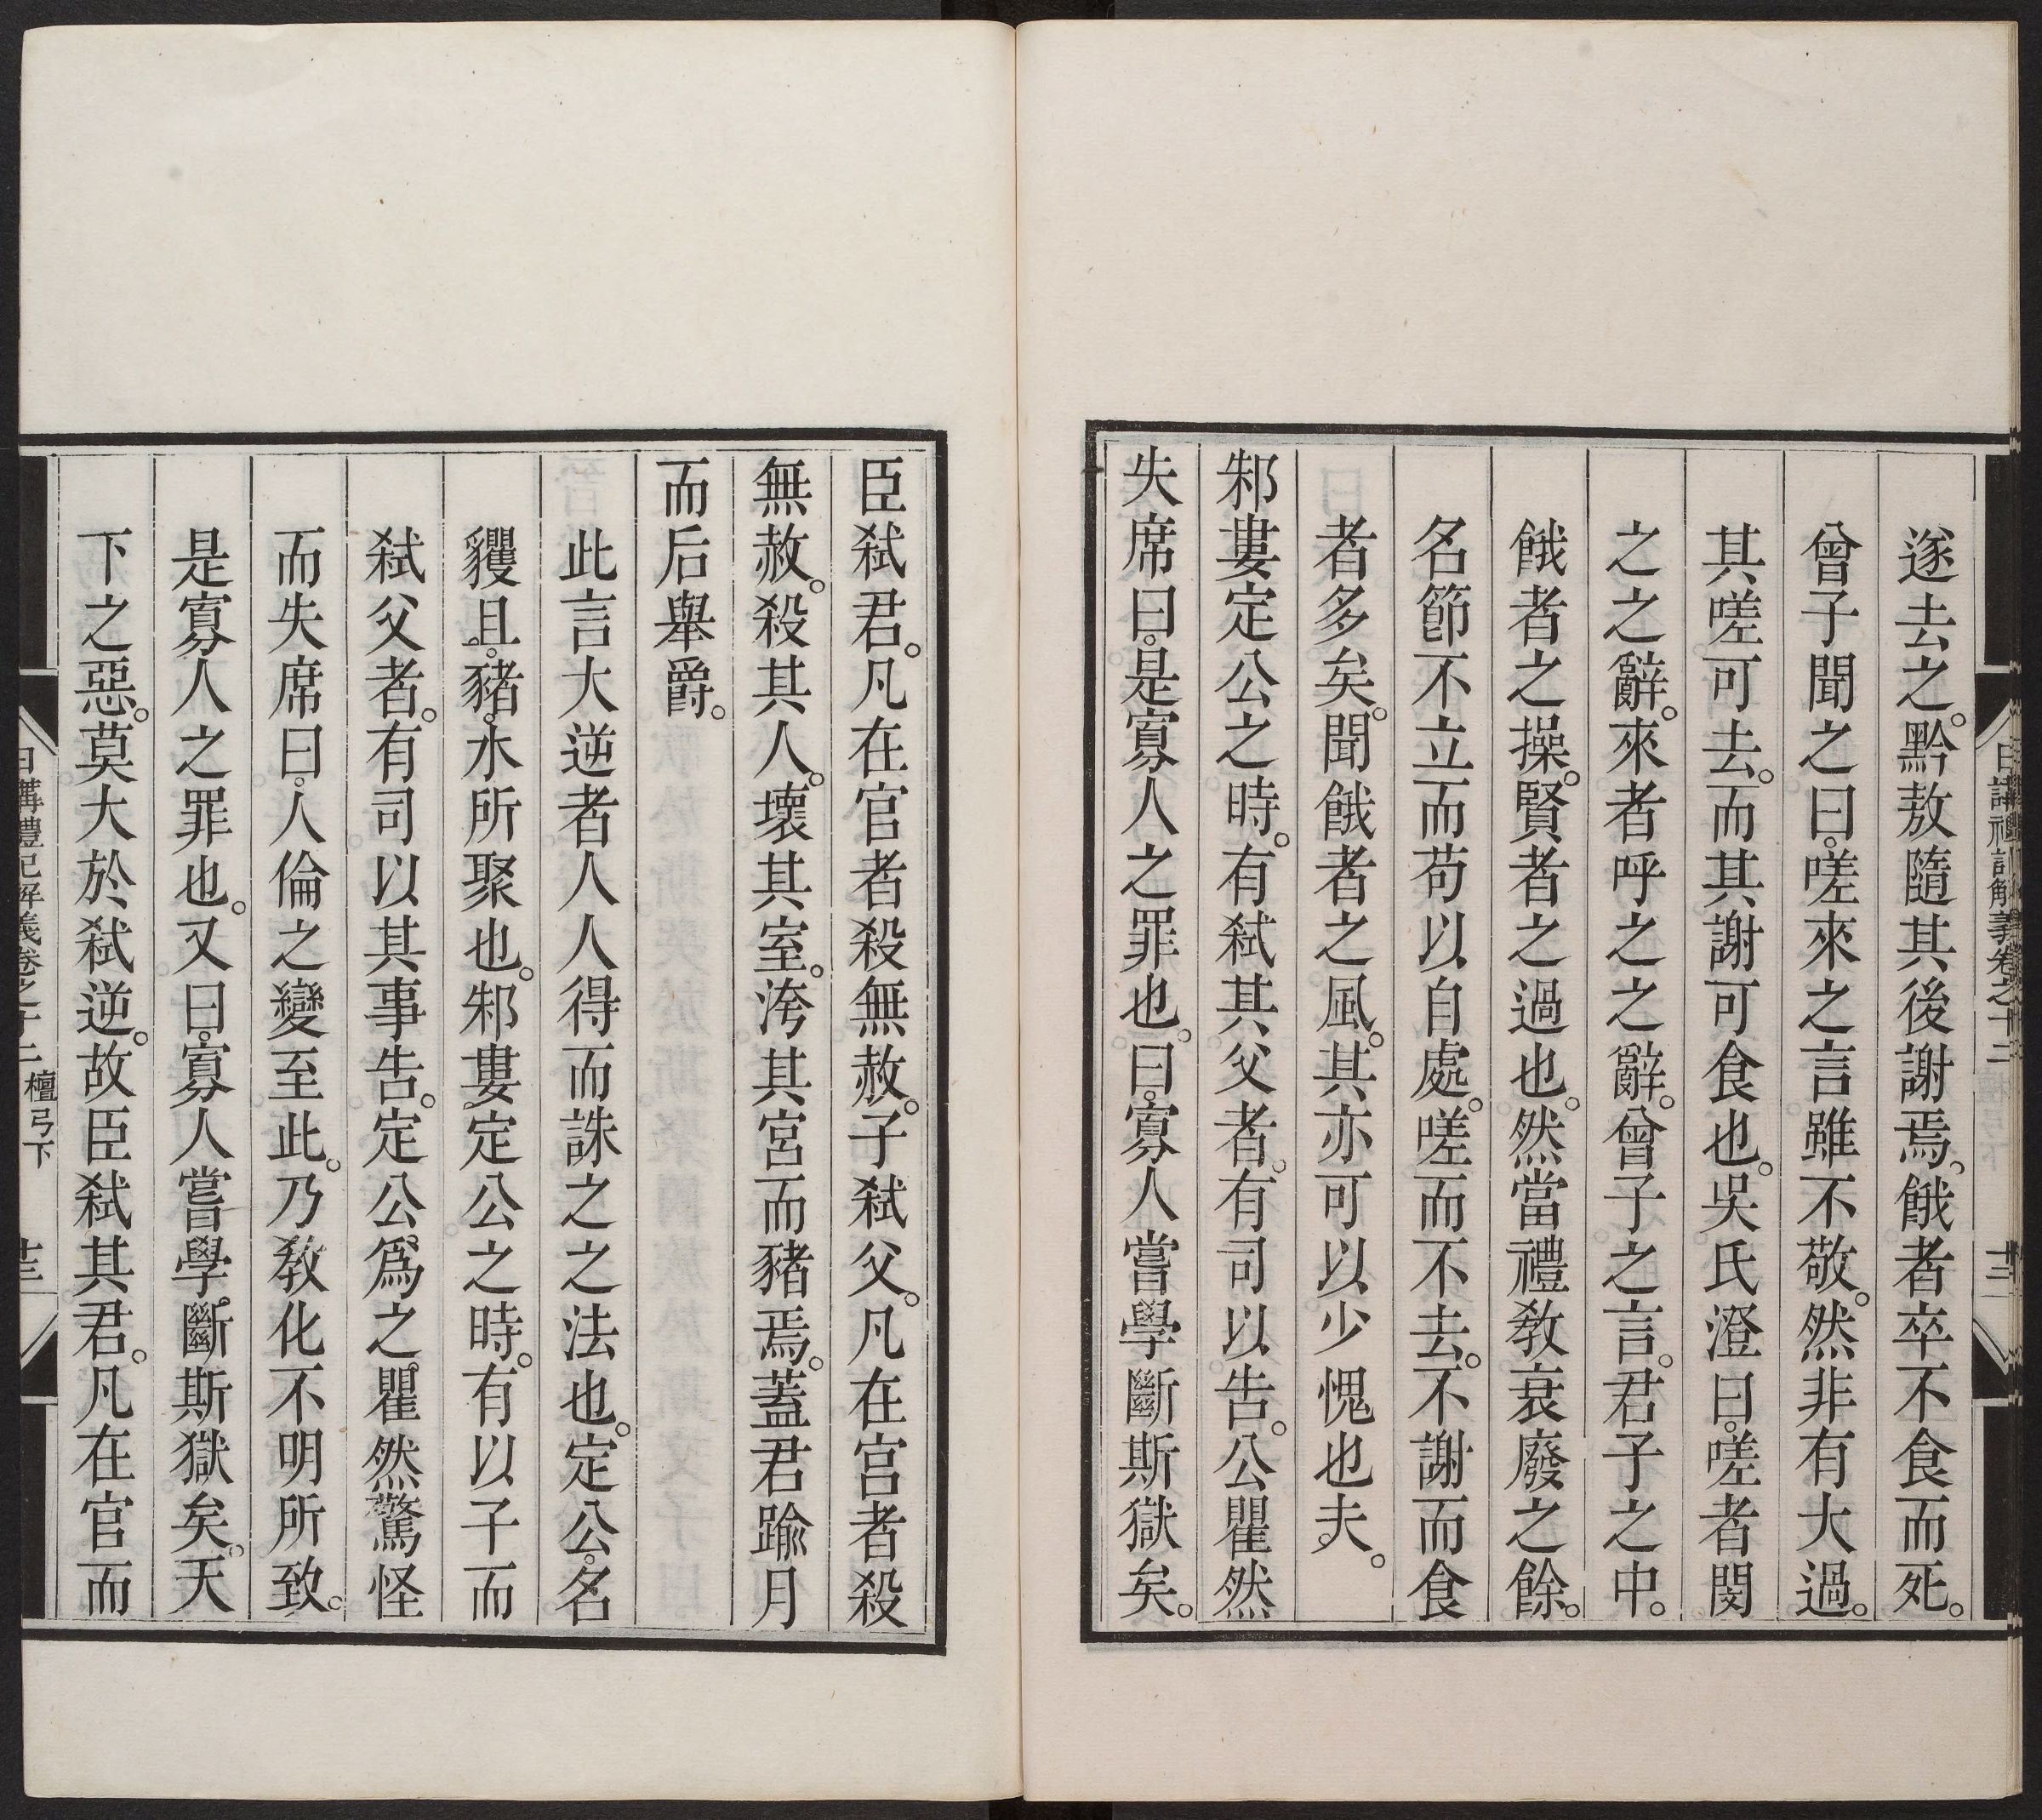 日講禮記解義卷之十二
遂去之。黔敖隨其後謝焉。餓者卒不食而死。
曾子聞之曰。嗟來之言雖不敬。然非有大過。
其嗟可去。而其謝可食也。吳氏澄曰。嗟者閔
之之辭。來者呼之之辭。曾子之言。君子之中。
餓者之操。賢者之過也。然當禮教衰廢之餘。
名節不立而苟以自處。嗟而不去。不謝而食
者多矣。聞餓者之風。其亦可以少愧也夫。
邾婁定公之時。有弒其父者。有司以告。公瞿然
失席曰。是寡人之罪也。曰。寡人嘗學斷斯獄矣。
臣弒君。凡在官者殺無赦。子弒父。凡在宮者殺
無赦。殺其人。壞其室。洿其宮而豬焉。蓋君踰月
而后舉爵。
此言大逆者人人得而誅之之法也。定公。名
貜且。豬。水所聚也。邾婁定公之時。有以子而
弒父者。有司以其事告。定公爲之瞿然驚怪
而失席曰。人倫之變至此。乃教化不明所致。
是寡人之罪也。又曰。寡人嘗學斷斯獄矣。天
下之惡。莫大於弒逆。故臣弒其君。凡在官而
日講禮記解義卷之十二 檀弓下